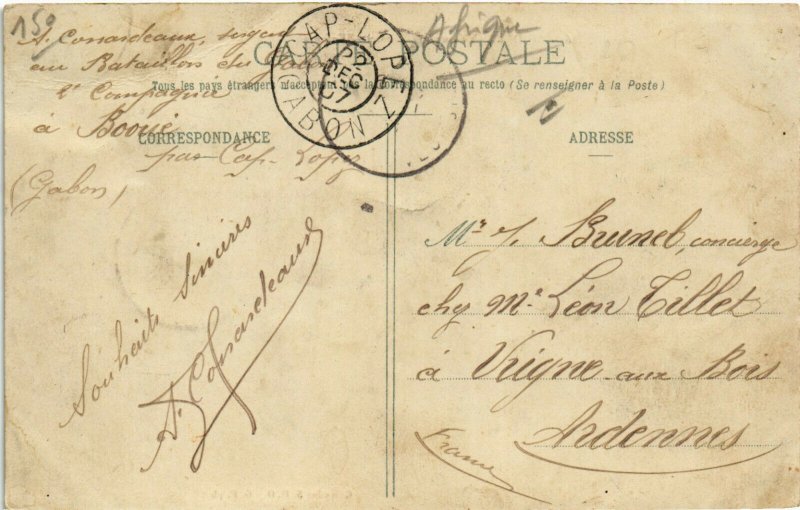 159
Afrique
CARTE POSTALE
Tous les pays étrangers n'acceptent pas la Correspondance au recto (Se renseigner à la Poste)
A. Conardeaux, sergent
au Bataillon du Gabon
2e Compagnie
à Booué
par Cap-Lopez
(Gabon)
CAP-LOPEZ
22
DEC
07
GABON
CORRESPONDANCE
Souhaits Sincères
A. Conardeaux
ADRESSE
Mr J. Brunel, concierge
chez Mr Léon Tillet
à Vrigne aux Bois
Ardennes
France